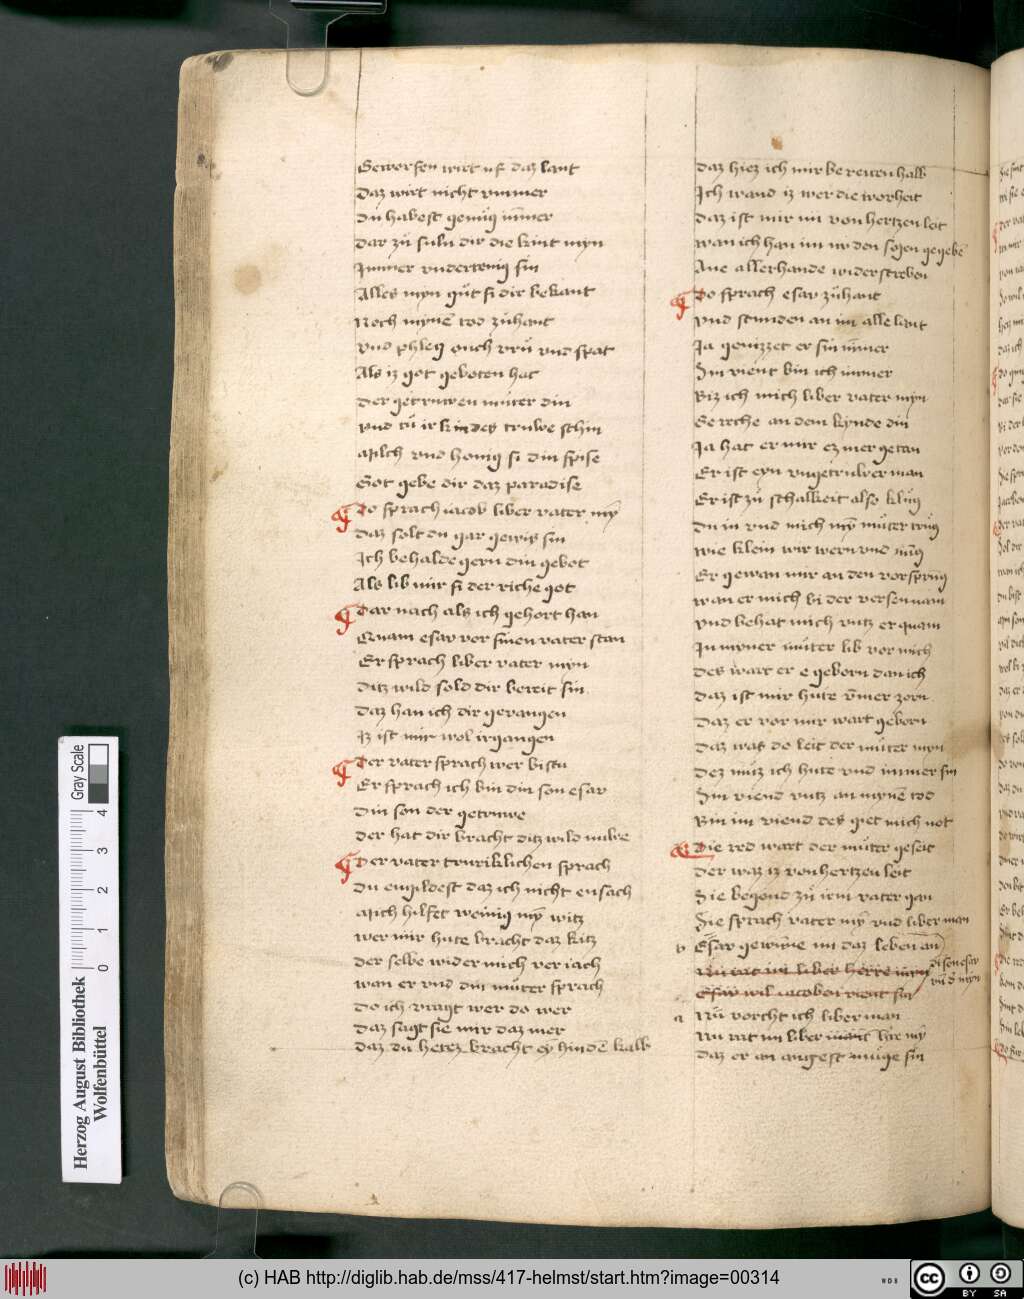 Geworfen wirt uf daz lant
Daz wirt nicht ummer
Du habest genug immer
Dar zu suln dir die kint myn
Immer undertenig sin
Alles myn gut si dir bekant
Noch myne tod zuhant
Und phleg ouch vru und spat
Als iz got geboten hat
Der getruwen muter din
Und tu ir kindes truwe schin
Milch und honig si din spise
Got gebe dir daz paradise
Do sprach iacob liber vater my
Daz solt du gar gewis sin
Ich behalde gern din gebot
Als lib mir si der riche got
Dar nach als ich gehort han
Quam esav vor sinen vater stan
Er sprach liber vater myn
Ditz wild sold dir bereit sin
Daz han ich dir gevangen
Iz ist mir wol irgangen
Der vater sprach wer bistu
Er sprach ich bin din son esav
Din son der getruwe
Der hat dir bracht ditz wild nuwe
Der vater truriklichen sprach
Du engildest daz ich nicht ensach
Mich hilfet weinig my witz
Wer mir hute bracht daz kitz
Der selbe wider mich veriach
Wan er und din muter sprach
Do ich vragt wer do wer
Daz sagt sie mir daz mer
Daz du hetez bracht ey hinde kalb
Daz hiez ich mir bereiten halb
Ich wand iz wer die worheit
Daz ist mir nu von hertzen leit
Wan ich han im nv den segen gegebe
Ane allerhande widerstreben
Do sprach esav zuhant
Und stunden an im alle lant
Ja genizzet er sin immer
Sin vient bin ich immer
Biz ich mich liber vater myn
Gereche an dem kynde din
Ja hat er mir ez mer getan
Er ist eyn ungetruwer man
Er ist zu schalkeit also klug
Du in und mich my muter trug
Wie klein wir wern und iung
Er gewan mir an den vorsprung
Wan er mich bi der versen nam
Und behat mich untz er quam
In myner muter lib vor mich
Des wart er e geborn dan ich
Daz ist mir hute ummer zorn
Daz er vor mir wart geborn
Daz was do leit der muter myn
Dez muz ich hute und immer sin
Sin viend untz an myne tod
Bin im viend des get mich not
Die red wart der muter geseit
Der waz iz von hertzen leit
Sie begond zu irm vater gan
Sie sprach vater my und liber man
b Esav gewinne im daz leben an
Nu rat mi liber herre myn
Esav wil iacoben vient sin
di son esav
un d myn
a Nu vorcht ich liber man
Nu rat im liber man h're my
Daz er an angest muge sin
Herzog August Bibliothek
Wolfenbüttel
0 1 2 3 4
Gray Scale
(c) HAB http://diglib.hab.de/mss/417-helmst/start.htm?image=00314
WDB
CC
BY SA